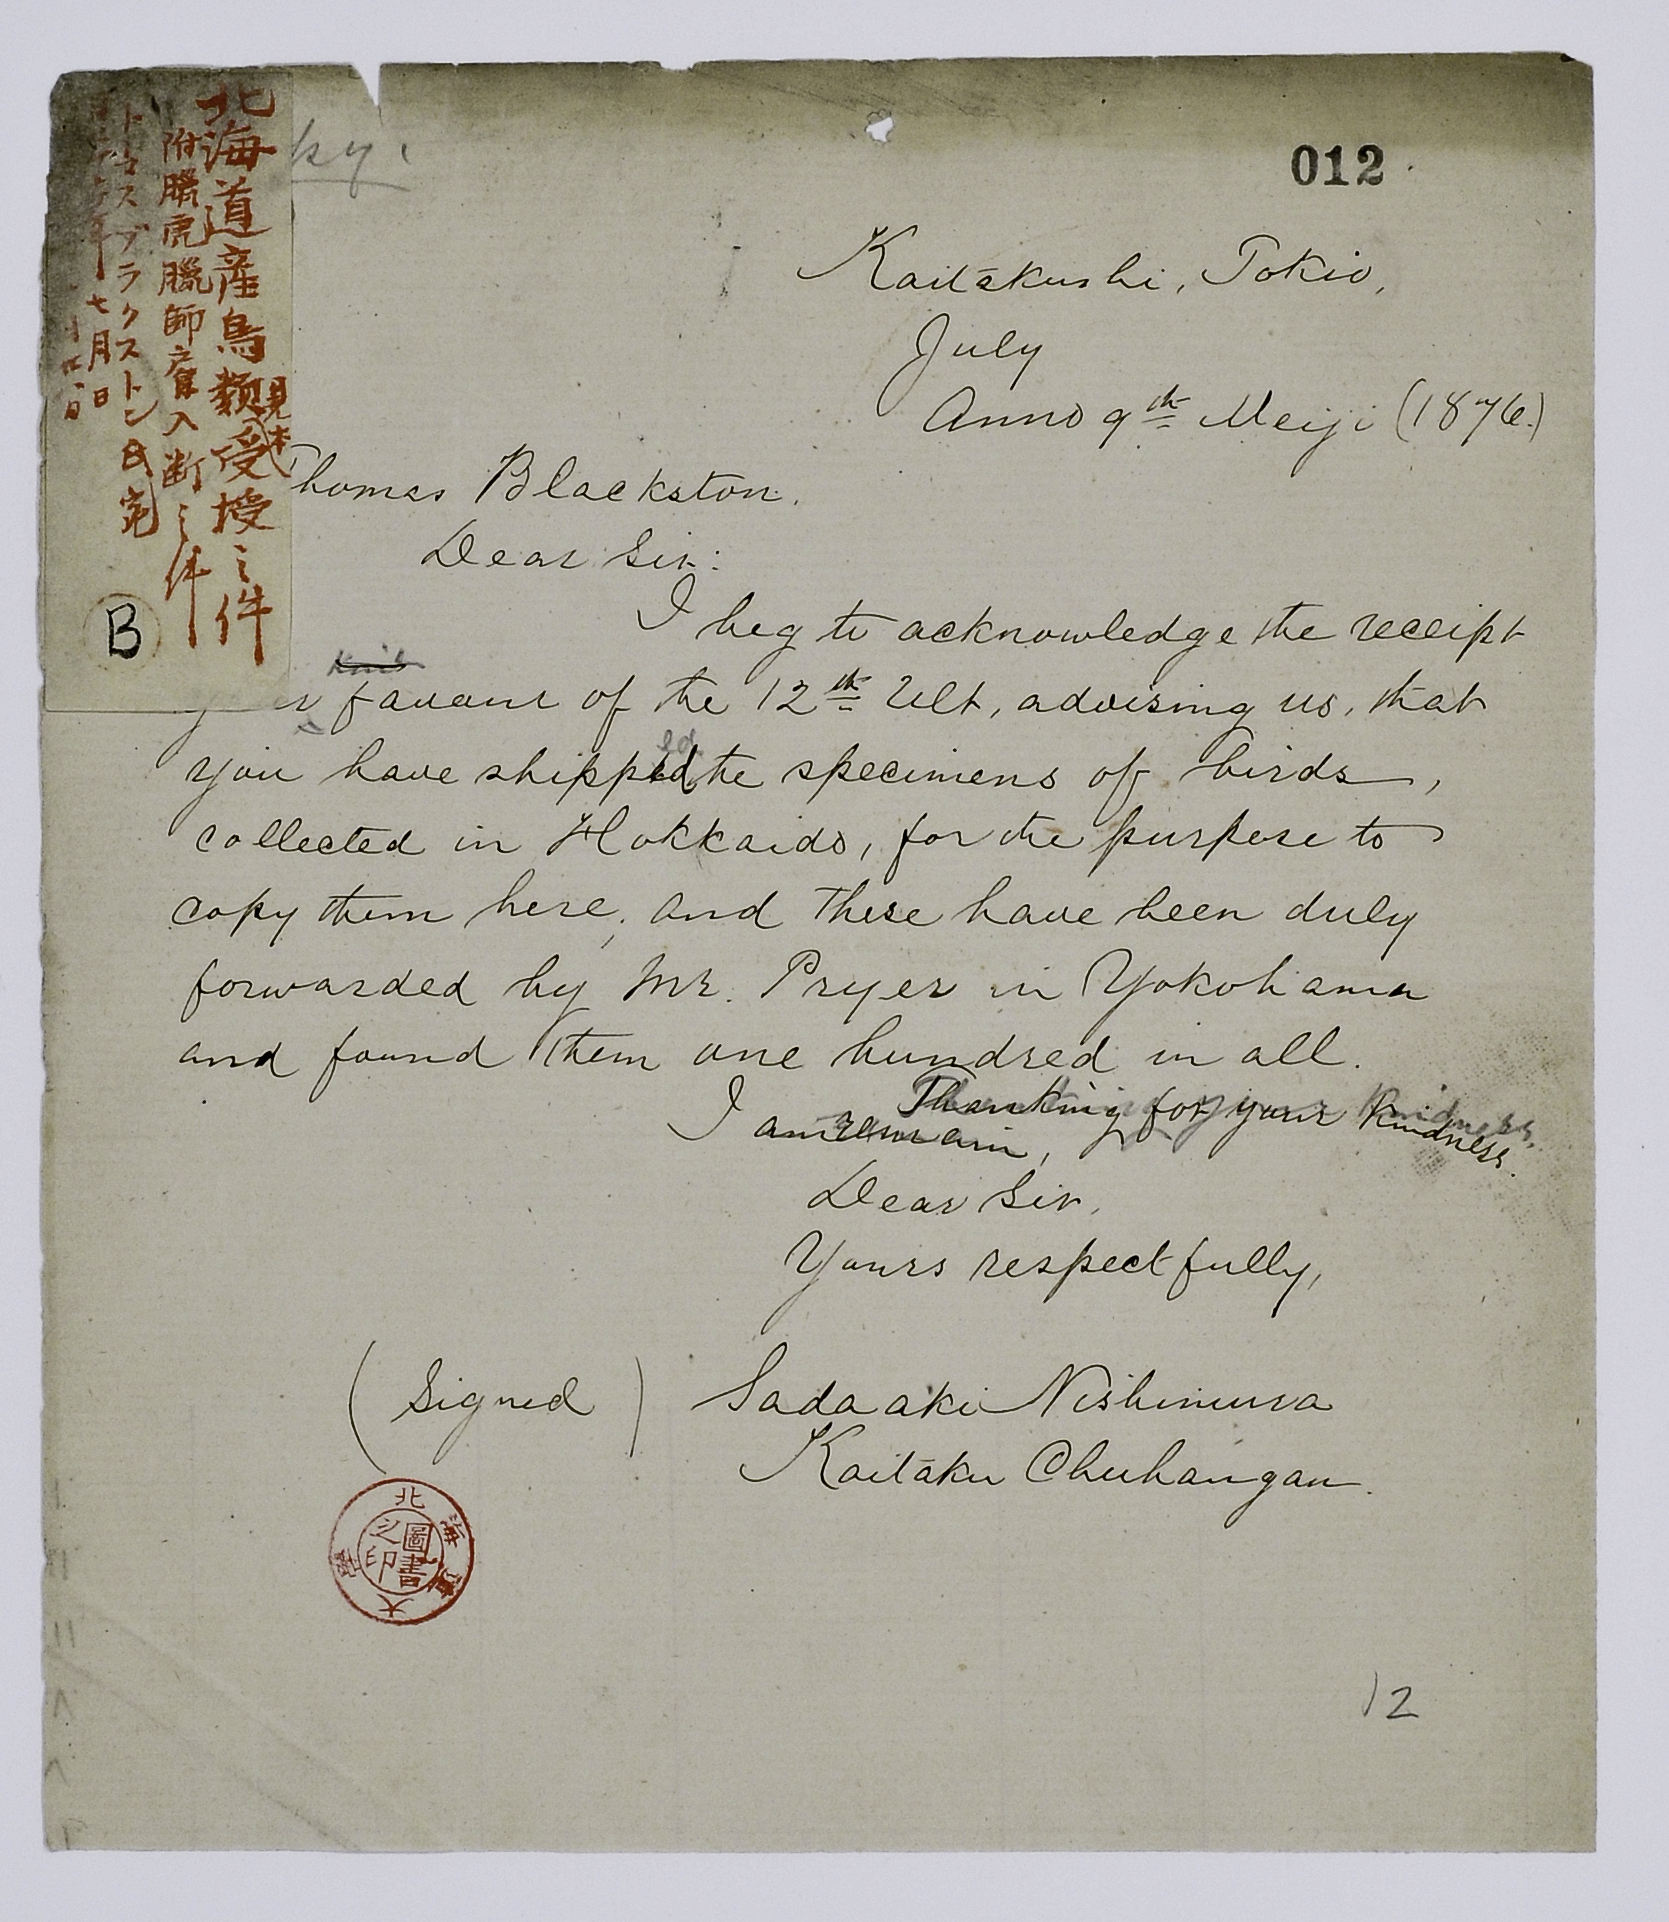 012
北海道産鳥類見本受授之件
附臘虎臘師雇入断之件
トーマスブラクストン氏宛
七月 日
B
Kaitakushi, Tokio,
July
Anno 9th Meiji (1876.)
Thomas Blackston.
Dear Sir:
I beg to acknowledge the receipt
favour of the 12th Ult, advising us, that
you have shipped the specimens of birds,
collected in Hokkaido, for the purpose to
copy them here, and these have been duly
forwarded by Mr. Pryer in Yokohama
and found them one hundred in all.
Thanking for your kindness.
I am remain,
Dear Sir,
Yours respectfully,
(Signed) Sadaaki Nishimura
Kaitaku Chuhangan.
北海道大學
圖書之印
12